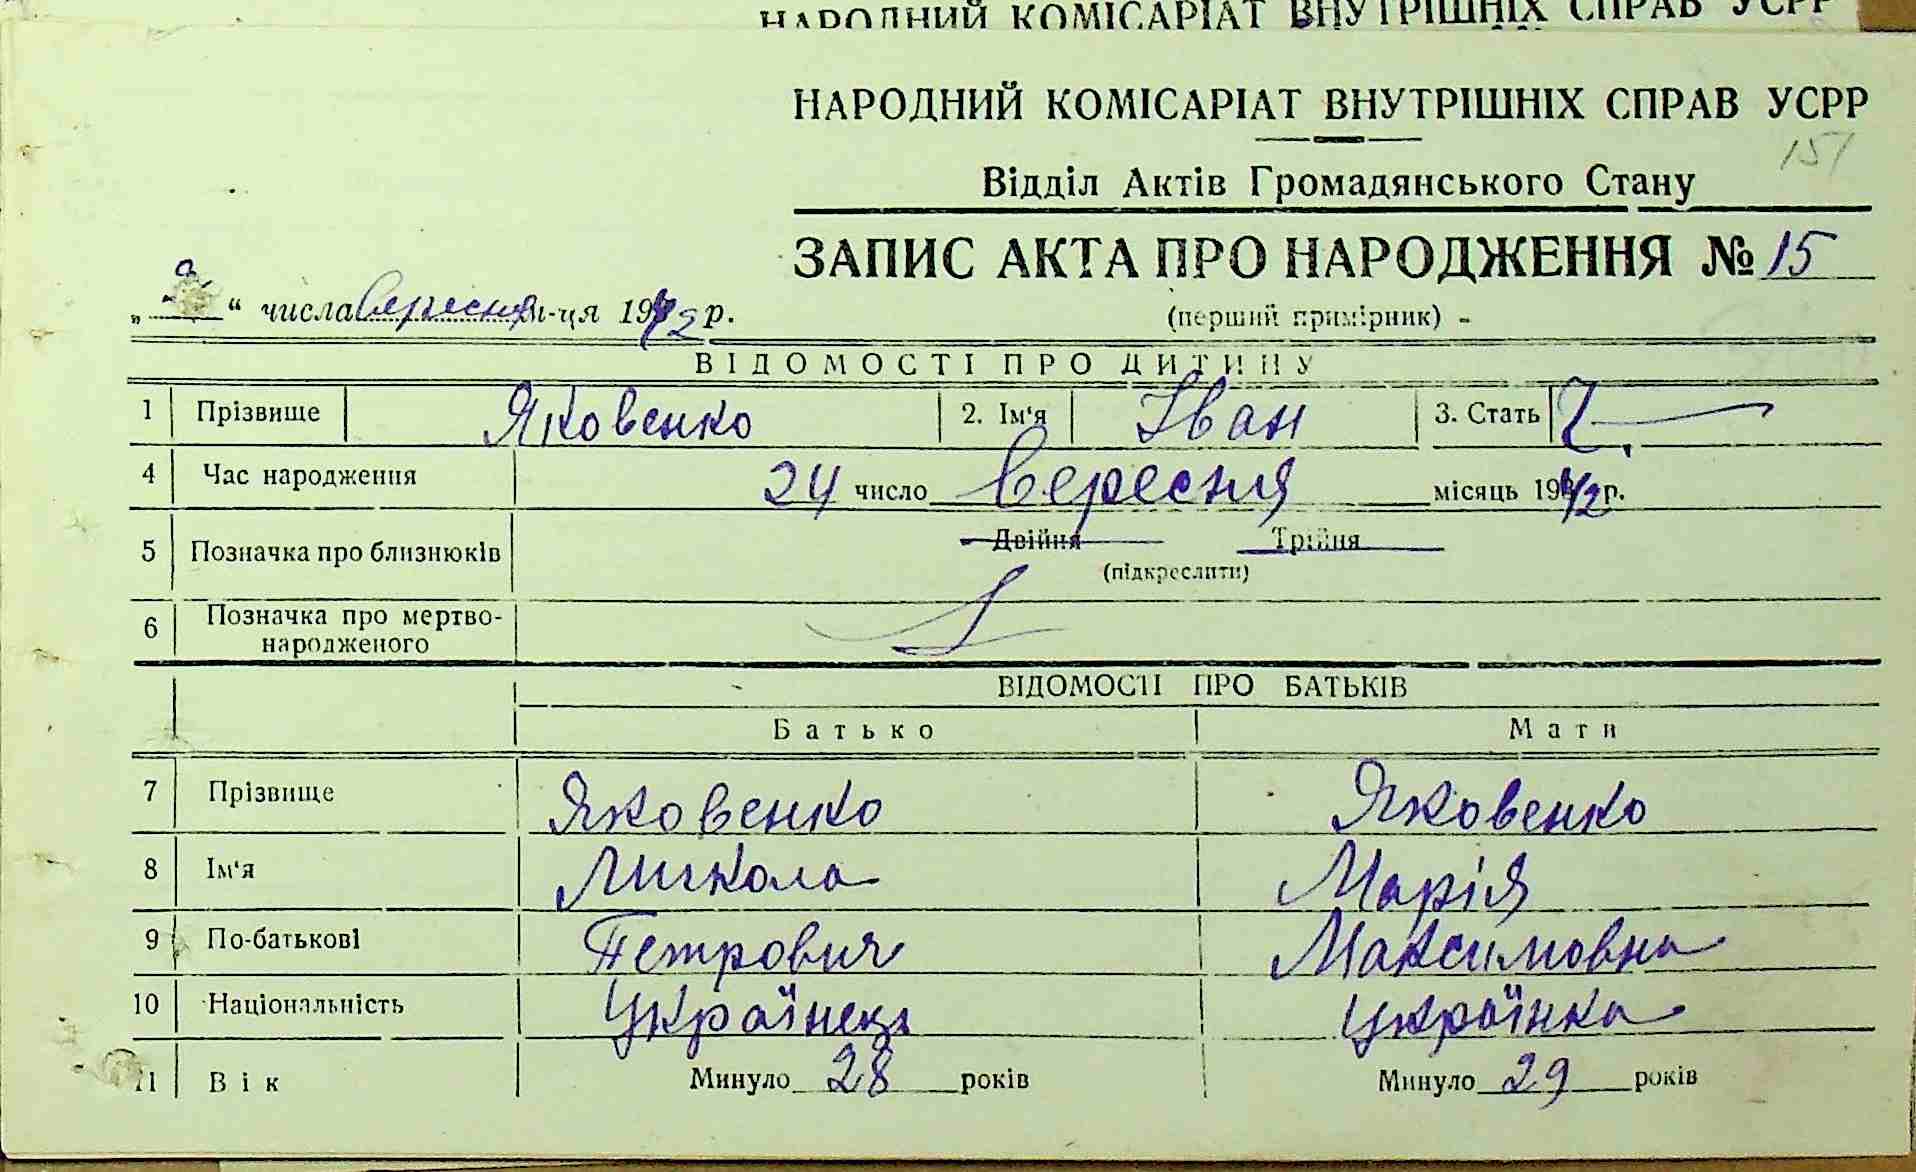 НАРОДНИЙ КОМІСАРІАТ ВНУТРІШНІХ СПРАВ УСРР
НАРОДНИЙ КОМІСАРІАТ ВНУТРІШНІХ СПРАВ УСРР
151
Відділ Актів Громадянського Стану
ЗАПИС АКТА ПРО НАРОДЖЕННЯ № 15
„ “ числа вересня м-ця 1942 р.
(перший примірник)
ВІДОМОСТІ ПРО ДИТИНУ
1 Прізвище Яковенко 2. Ім‘я Іван 3. Стать Ч.
4 Час народження 24 число вересня місяць 1942 р.
5 Позначка про близнюків Двійня Трійня
(підкреслити)
6 Позначка про мертво-
народженого
ВІДОМОСТІ ПРО БАТЬКІВ
Батько Мати
7 Прізвище Яковенко Яковенко
8 Ім‘я Микола Марія
9 По-батькові Петрович Максимовна
10 Національність Українець Українка
11 Вік Минуло 28 років Минуло 29 років